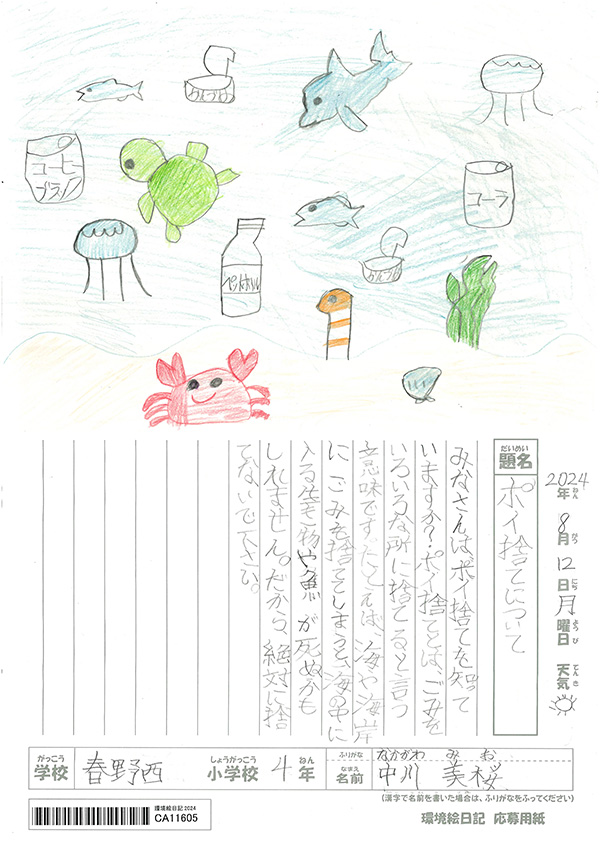 かんづめ
コーヒー
ブラック
コーラ
ペットボトル
かんづめ
2024年 8月 12日 月曜日 天気
ねん がつ にち ようび てんき
だいめい
題名
ポイ捨てについて
みなさんはポイ捨てを知って
いますか?ポイ捨てとは、ごみを
いろいろな所に捨てると言う
意味です。たとえば、海や海岸
に、ごみを捨ててしまうと、海の中に
入る生き物や魚が死ぬかも
しれません。だから、絶対に捨
てないで下さい。
がっこう しょうがっこう ねん
学校 春野西 小学校 4年
ふりがな なかがわ みお
なまえ
名前 中川 美桜
(漢字で名前を書いた場合は、ふりがなをふってください)
環境絵日記2024
CA11605
環境絵日記 応募用紙